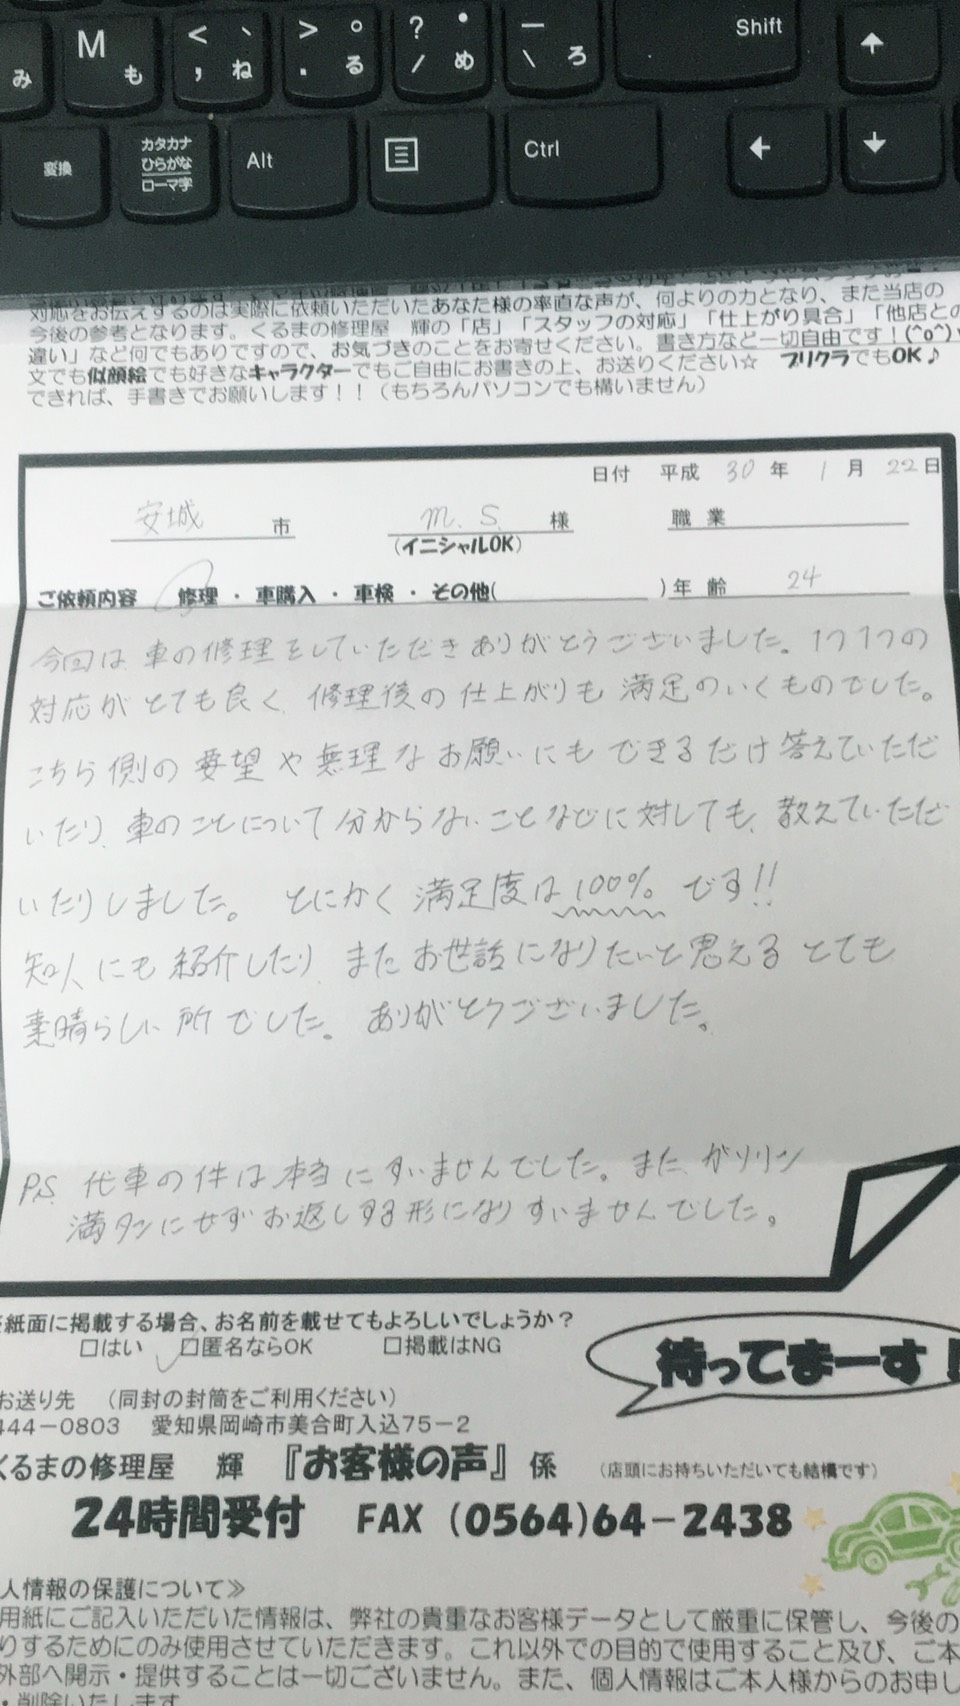 み M も < 、 , ね > 。 . る ? ・ / め _ \ ろ Shift ↑
変換 カタカナ ひらがな ローマ字 Alt Ctrl ← ↓
対応をお伝えするのは実際に依頼いただいたあなた様の率直な声が、何よりの力となり、また当店の
今後の参考となります。くるまの修理屋 輝の「店」「スタッフの対応」「仕上がり具合」「他店との
違い」など何でもありですので、お気づきのことをお寄せください。書き方など一切自由です！(^o^)
文でも似顔絵でも好きなキャラクターでもご自由にお書きの上、お送りください☆ プリクラでもOK♪
できれば、手書きでお願いします！！（もちろんパソコンでも構いません）
日付 平成 30 年 1 月 22 日
安城 市 M.S. 様 職業
（イニシャルOK）
ご依頼内容 修理 ・ 車購入 ・ 車検 ・ その他( ) 年齢 24
今回は車の修理をしていただきありがとうございました。1つ1つの
対応がとても良く、修理後の仕上がりも満足のいくものでした。
こちら側の要望や無理なお願いにもできるだけ答えていただ
いたり、車のことについて分からないことなどに対しても、教えていただ
いたりしました。とにかく満足度は100%です!!
知人にも紹介したり、またお世話になりたいと思えるとても
素晴らしい所でした。ありがとうございました。
P.S. 代車の件は本当にすいませんでした。また、ガソリン
満タンにせずお返しする形になりすいませんでした。
紙面に掲載する場合、お名前を載せてもよろしいでしょうか？
□はい ☑匿名ならOK □掲載はNG
待ってまーす！
お送り先 （同封の封筒をご利用ください）
444－0803 愛知県岡崎市美合町入込75－2
くるまの修理屋 輝 『お客様の声』係 （店頭にお持ちいただいても結構です）
24時間受付 FAX（0564)64－2438
人情報の保護について≫
用紙にご記入いただいた情報は、弊社の貴重なお客様データとして厳重に保管し、今後の
りするためにのみ使用させていただきます。これ以外での目的で使用すること及び、ご本
外部へ開示・提供することは一切ございません。また、個人情報はご本人様からのお申し
・削除いたします